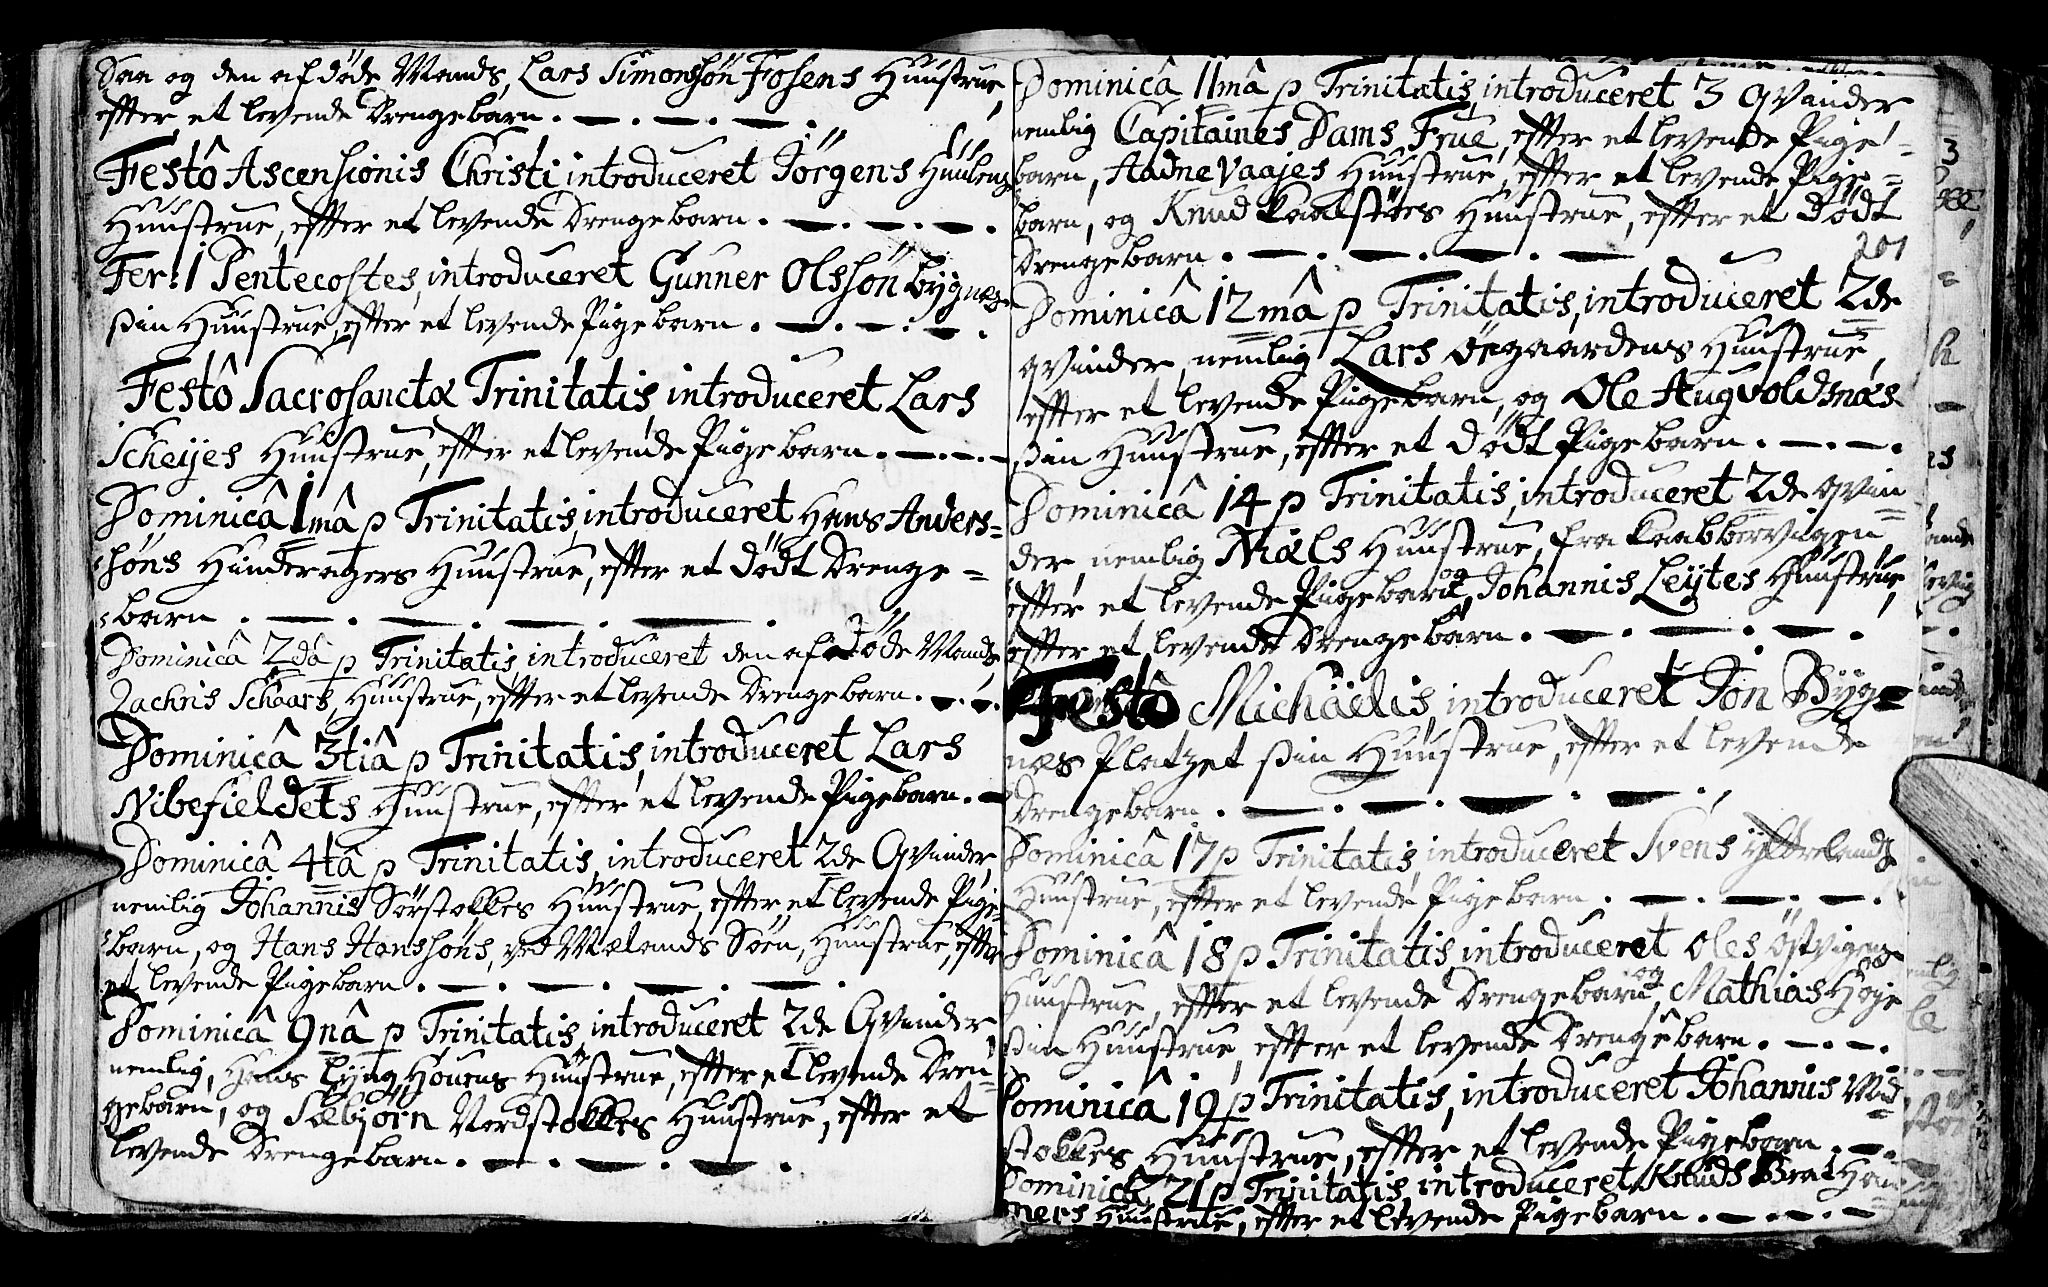 Saa og den afdöde Mands, Lars Simonsön Fosens Huustrue,
effter et levende Drengebarn.
Festô Ascensionis Christi introduceret Jörgens
Huustrue, effter et levende Drengebarn.
Fer: 1 Pentecostes, introduceret Gunner Olssön Bygnes
sin Huustrue, effter et levende Pigebarn.
Festô Sacrosanctæ Trinitatis, introduceret Lars
Scheijes Huustrue, effter et levende Pigebarn.
Dominicâ 1mâ p Trinitatis, introduceret Hans Anders=
söns Hinderagers Huustrue, effter et dödt Drenge=
barn.
Dominicâ 2dâ p Trinitatis, introduceret den afdöde Mands,
Zachris Schaars, Huustrue, effter et levende Drengebarn.
Dominicâ 3tiâ p Trinitatis, introduceret Lars
Nibefieldets Huustrue, effter et levende Pigebarn.
Dominicâ 4tâ p Trinitatis, introduceret 2de Qvinder,
nemlig Johannis Sörstokkes Huustrue, effter et levende Pige=
barn, og Hans Hanssöns, ved Mælands Söen, Huustrue, effter
et levende Pigebarn.
Dominicâ 9nâ p Trinitatis, introduceret 2de Qvinder
nemlig, Hans Lyng Houens Huustrue, effter et levende Dren=
gebarn, og Sæbjörn Nordstokkes Huustrue, effter et
levende Drengebarn.
Dominicâ 11mâ p Trinitatis, introduceret 3 Qvinder
nemlig Capitaines Dams Frue, effter et levende Pige=
barn, Aadne Vaajes Huustrue, effter et levende Pige=
barn, og Knud Kaalstöes Huustrue, effter et dödt
Drengebarn.
201
Dominicâ 12mâ p Trinitatis, introduceret 2de
Qvinder, nemlig Lars Öegaardens Huustrue,
effter et levende Pigebarn, og Ole Augvoldsnæs
sin Huustrue, effter et dödt Pigebarn.
Dominicâ 14 p Trinitatis, introduceret 2de Qvin=
der, nemlig Niels Huustrue, fra Kaabbervigen
effter et levende Pigebarn, og Johannis Leijtes Huustrue,
effter et levende Drengebarn.
Festô Michäelis, introduceret Jon Byg=
næs Platzet sin Huustrue, effter et levende
Drengebarn.
Dominicâ 17 p Trinitatis, introduceret Svens
Huustrue, effter et levende Pigebarn.
Dominicâ 18 p Trinitatis, introduceret Oles Östvigens
Huustrue, effter et levende Drengebarn, og Mathias Höje
sin Huustrue, effter et levende Drengebarn.
Dominicâ 19 p Trinitatis, introduceret Johannis Mid=
stokkes Huustrue, effter et levende Pigebarn.
Dominicâ 21 p Trinitatis, introduceret Knuds Brat Ham
mers Huustrue, effter et levende Pigebarn.